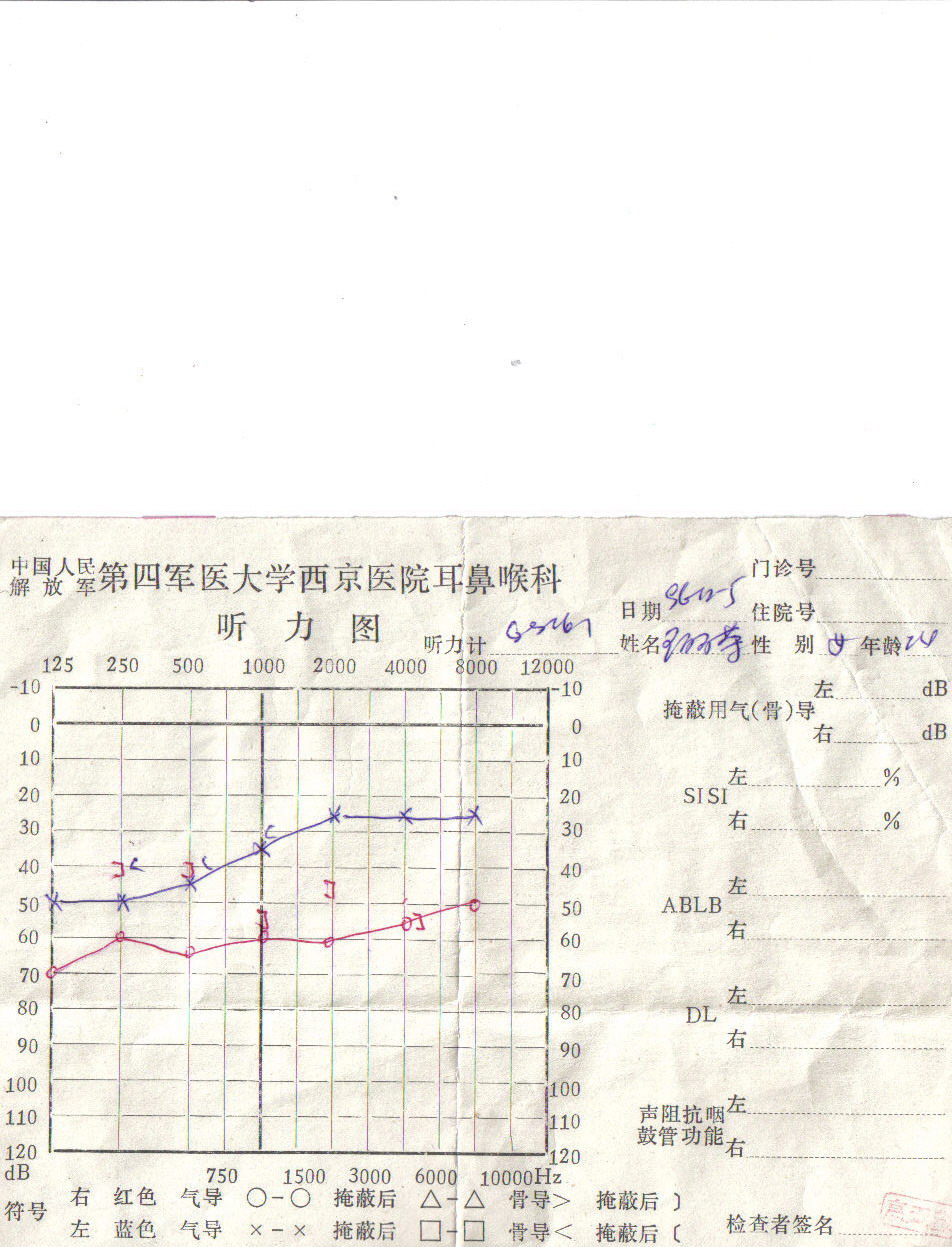 中国人民解放军第四军医大学西京医院耳鼻喉科
听力图
门诊号
日期 住院号
听力计 姓名 性别 女 年龄 24
125 250 500 1000 2000 4000 8000 12000
-10 -10
0 0
10 10
20 20
30 30
40 40
50 50
60 60
70 70
80 80
90 90
100 100
110 110
120 120
dB 750 1500 3000 6000 10000Hz
掩蔽用气(骨)导 左 dB
右 dB
SISI 左 %
右 %
ABLB 左
右
DL 左
右
声阻抗咽鼓管功能 左
右
符号 右 红色 气导 ○-○ 掩蔽后 △-△ 骨导> 掩蔽后 〕
左 蓝色 气导 ×-× 掩蔽后 □-□ 骨导< 掩蔽后〔
检查者签名